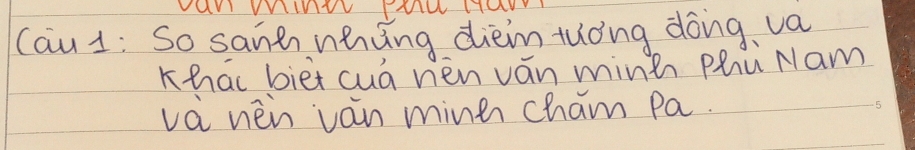 văn minh Phù Nam
Câu 1: So sánh những điểm tương đồng và
khác biệt của nền văn minh Phù Nam
và nền văn minh Chăm Pa.
5